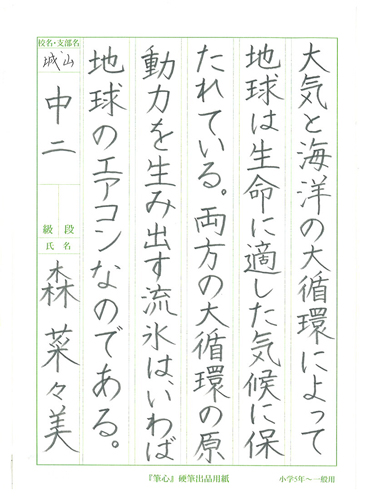 大気と海洋の大循環によって
地球は生命に適した気候に保
たれている。両方の大循環の原
動力を生み出す流氷は、いわば
地球のエアコンなのである。
校名・支部名
城山
中二
段
級
氏名
森菜々美
『筆心』硬筆出品用紙
小学5年~一般用